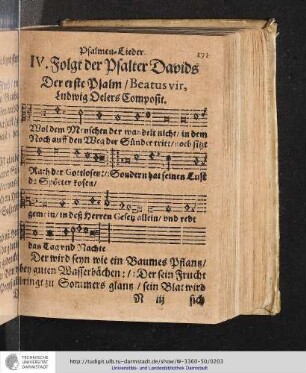 Psalmen-Lieder.
IV. Folgt der Psalter Davids
Der erste Psalm / Beatus vir,
Ludwig Oelers Composit.
Wol dem Menschen der wandelt nicht / in dem
Noch auff den Weg der Sünder tritt / noch sitzt
Rath der Gottlosen :/: Sondern hat seinen Lust
de Spötter kosen /
gemein / in deß Herren Gesetz allein / und redt
davon Tag vnd Nachte
Der wird seyn wie ein Baumes Pflantz /
bey guten Wasserbächen :/: Der sein Frucht
bringt zu Sommers glantz / sein Blat wird
N iij sich
TECHNISCHE
UNIVERSITÄT
DARMSTADT
http://tudigit.ulb.tu-darmstadt.de/show/W-3360-50/0203
Universitäts- und Landesbibliothek Darmstadt